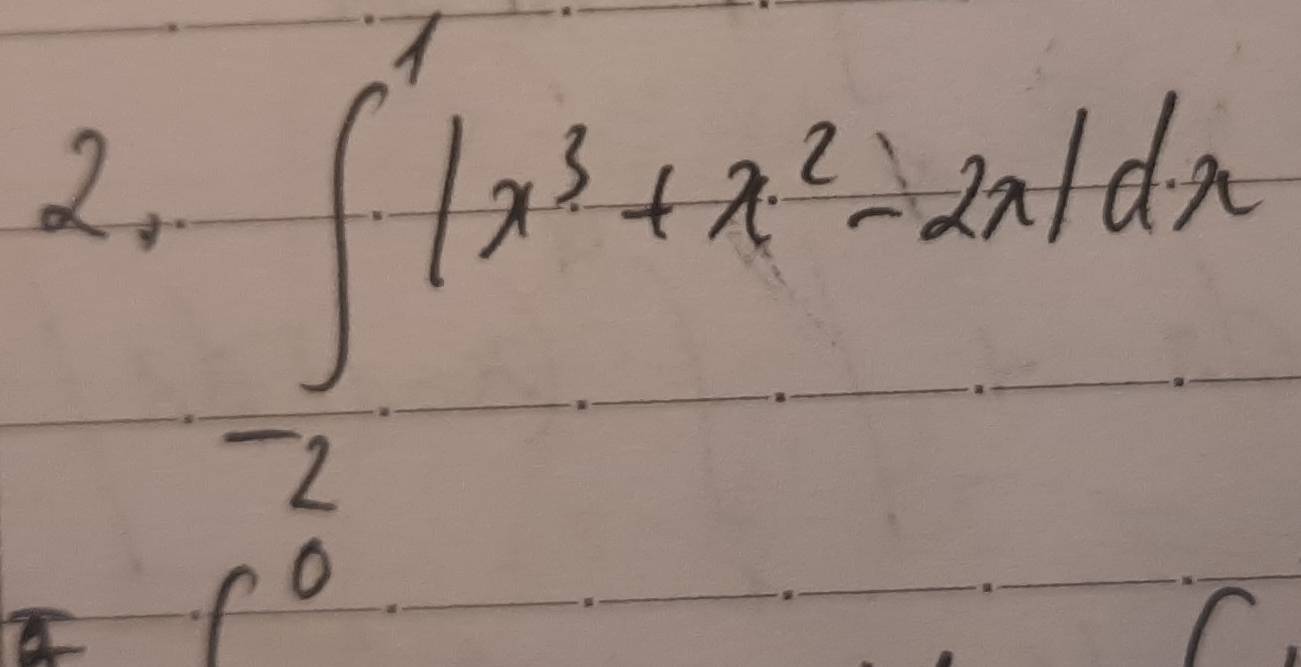 2, ∫_{-2}^{1} |x³ + x² - 2x| dx
∫^{0}